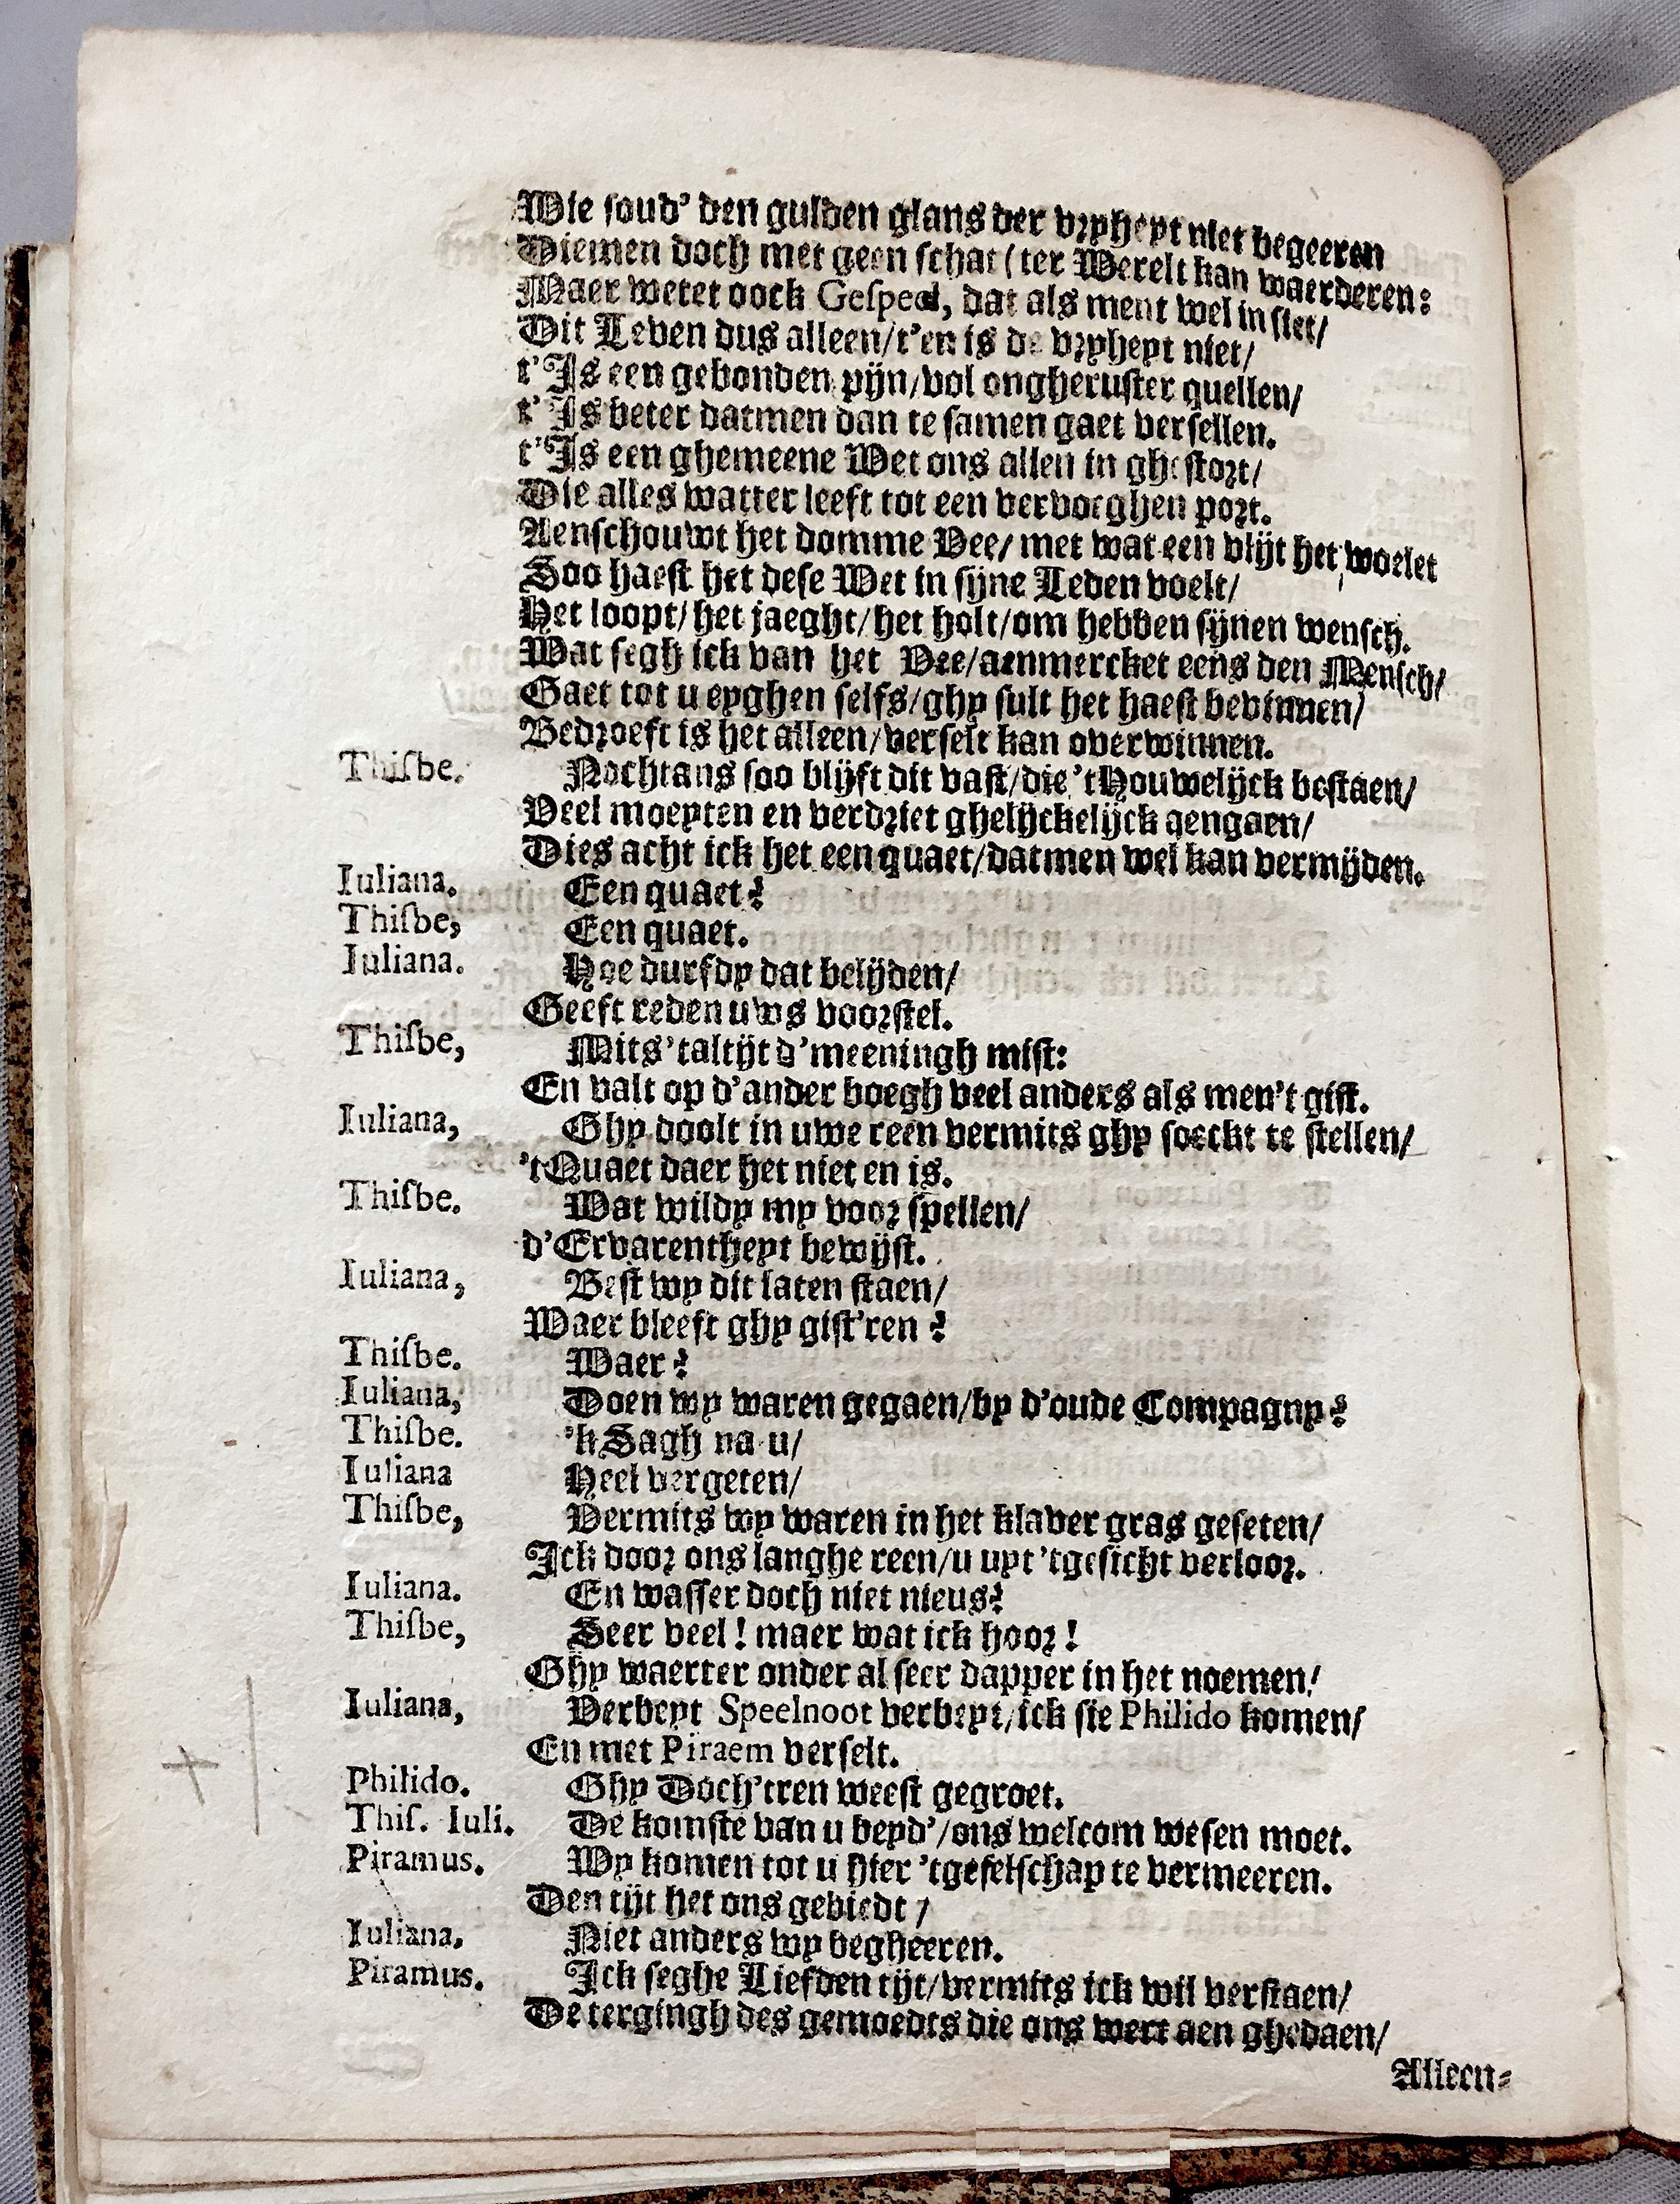 Wie soud' den gulden glans der vryheyt niet begeeren
Diemen doch met geen schat (ter Werelt kan waerderen:
Maer wetet oock Gespeel, dat als ment wel in siet/
Dit Leven dus alleen/t'en is de vryheyt niet/
t'Is een gebonden pijn/vol ongheruster quellen/
t'Is beter datmen dan te samen gaet versellen.
t'Is een ghemeene Wet ons allen in ghestort/
Die alles watter leeft tot een vervoeghen port.
Aenschouwt het domme Vee/ met wat een vlijt het woelet
Soo haest het dese Wet in sijne Leden voelt/
Het loopt/het jaeght/het holt/om hebben sijnen wensch.
Wat segh ick van het Vee/aenmercket eens den Mensch/
Gaet tot u eyghen selfs/ghy sult het haest bevinnen/
Bedroeft is het alleen/verselt kan overwinnen.
Thisbe. Nochtans soo blijft dit vast/die 'tHouwelijck bestaen/
Veel moeyten en verdriet ghelijckelijck aengaen/
Dies acht ick het een quaet/datmen wel kan vermijden.
Iuliana. Een quaet?
Thisbe, Een quaet.
Iuliana. Hoe durfdy dat belijden/
Geeft reden uws voorstel.
Thisbe, Mits 'taltijt d'meeningh mist:
En valt op d'ander boegh veel anders als men't gist.
Iuliana, Ghy doolt in uwe reen vermits ghy soeckt te stellen/
'tQuaet daer het niet en is.
Thisbe. Wat wildy my voor spellen/
d'Ervarentheyt bewijst.
Iuliana, Best wy dit laten staen/
Waer bleeft ghy gist'ren?
Thisbe. Waer?
Iuliana, Doen wy waren gegaen/by d'oude Compagny?
Thisbe. 'k Sagh na u/
Iuliana Heel vergeten/
Thisbe, Vermits wy waren in het klaver gras geseten/
Ick door ons langhe reen/u uyt 'tgesicht verloor.
Iuliana. En wasser doch niet nieus?
Thisbe, Seer veel! maer wat ick hoor!
Ghy waerter onder al seer dapper in het noemen/
Iuliana, Verbeyt Speelnoot verbeyt/ick sie Philido komen/
En met Piraem verselt.
Philido. Ghy Doch'tren weest gegroet.
Thiś. Iuli. De komste van u beyd'/ons welcom wesen moet.
Piramus. Wy komen tot u hier 'tgeselschap te vermeeren.
Den tijt het ons gebiedt/
Iuliana. Niet anders wy begheeren.
Piramus. Ick seghe Liefden tijt/vermits ick wil verstaen/
De tergingh des gemoedts die ons wert aen ghedaen/
Alleen-